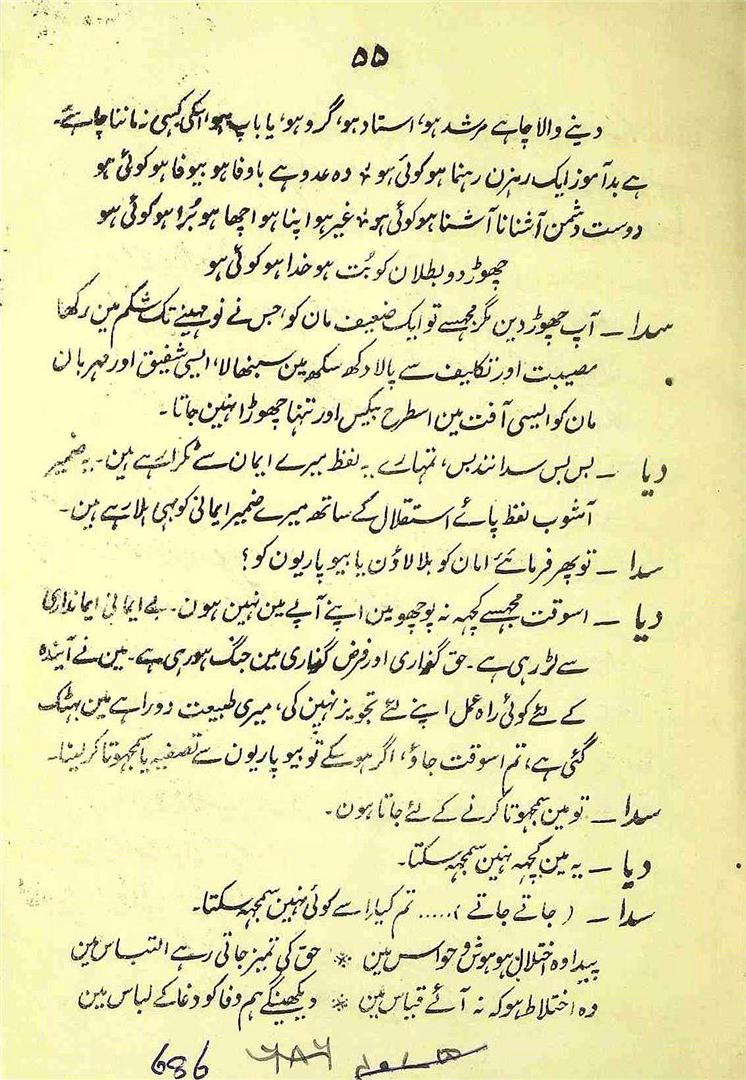 ۵۵
دینے والا چاہے مرشد ہو، استاد ہو، گرو ہو، یا باپ ہو، اسکی کیسی نہ ماننا چاہئے۔
ہے بدآموز ایک رہزن رہنما ہو کوئی ہو ؛ وہ عدو ہے باوفا ہو بیوفا ہو کوئی ہو
دوست دشمن آشنا نا آشنا ہو کوئی ہو ؛ غیر ہو اپنا ہو اچھا ہو بُرا ہو کوئی ہو
چھوڑ دو بطلان کو بُت ہو خدا ہو کوئی ہو
سدا ـ آپ چھوڑ دین مگر مجھسے تو ایک ضعیف مان کو، جس نے نو مہینے تک شکم مین رکھا
مصیبت اور تکالیف سے پالا دکھ سکھ مین سنبھالا، ایسی شفیق اور مہربان
مان کو ایسی آفت مین اسطرح بیکس اور تنہا چھوڑا نہین جاتا۔
دیا ـ بس بس سدانند بس، تمہارے یہ لفظ میرے ایمان سے ٹکرا رہے ہین۔ یہ ضمیر
آشوب لفظ پائے استقلال کے ساتھ میرے ضمیر ایمانی کو بہی ہلا رہے ہین۔
سدا ـ تو پھر فرمائے امان کو بلا لاؤن یا بیوپاریون کو؟
دیا ـ اسوقت مجھسے کچہ نہ پوچھو مین اپنے آپے مین نہین ہون۔ بے ایمانی ایمانداری
سے لڑ رہی ہے۔ حق گذاری اور فرض گذاری مین جنگ ہو رہی ہے۔ مین نے آیندہ
کے لئے کوئی راہ عمل اپنے لئے تجویز نہین کی، میری طبیعت دوراہے مین بہٹک
گئی ہے، تم اسوقت جاؤ، اگر ہو سکے تو بیوپاریون سے تصفیہ یا سمجھوتا کر لینا۔
سدا ـ تو مین سمجہوتا کرنے کے لئے جاتا ہون۔
دیا ـ یہ مین کچہہ نہین سمجہہ سکتا۔
سدا ـ (جاتے جاتے)..... تم کیا اسے کوئی نہین سمجہہ سکتا۔
پیدا وہ اختلال ہو ہوش و حواس مین * حق کی تمیز جاتی رہے التباس مین
وہ اختلاط ہو کہ نہ آئے قیاس مین * دیکھینگے ہم وفا کو دغا کے لباس مین
686 ۷۸۶